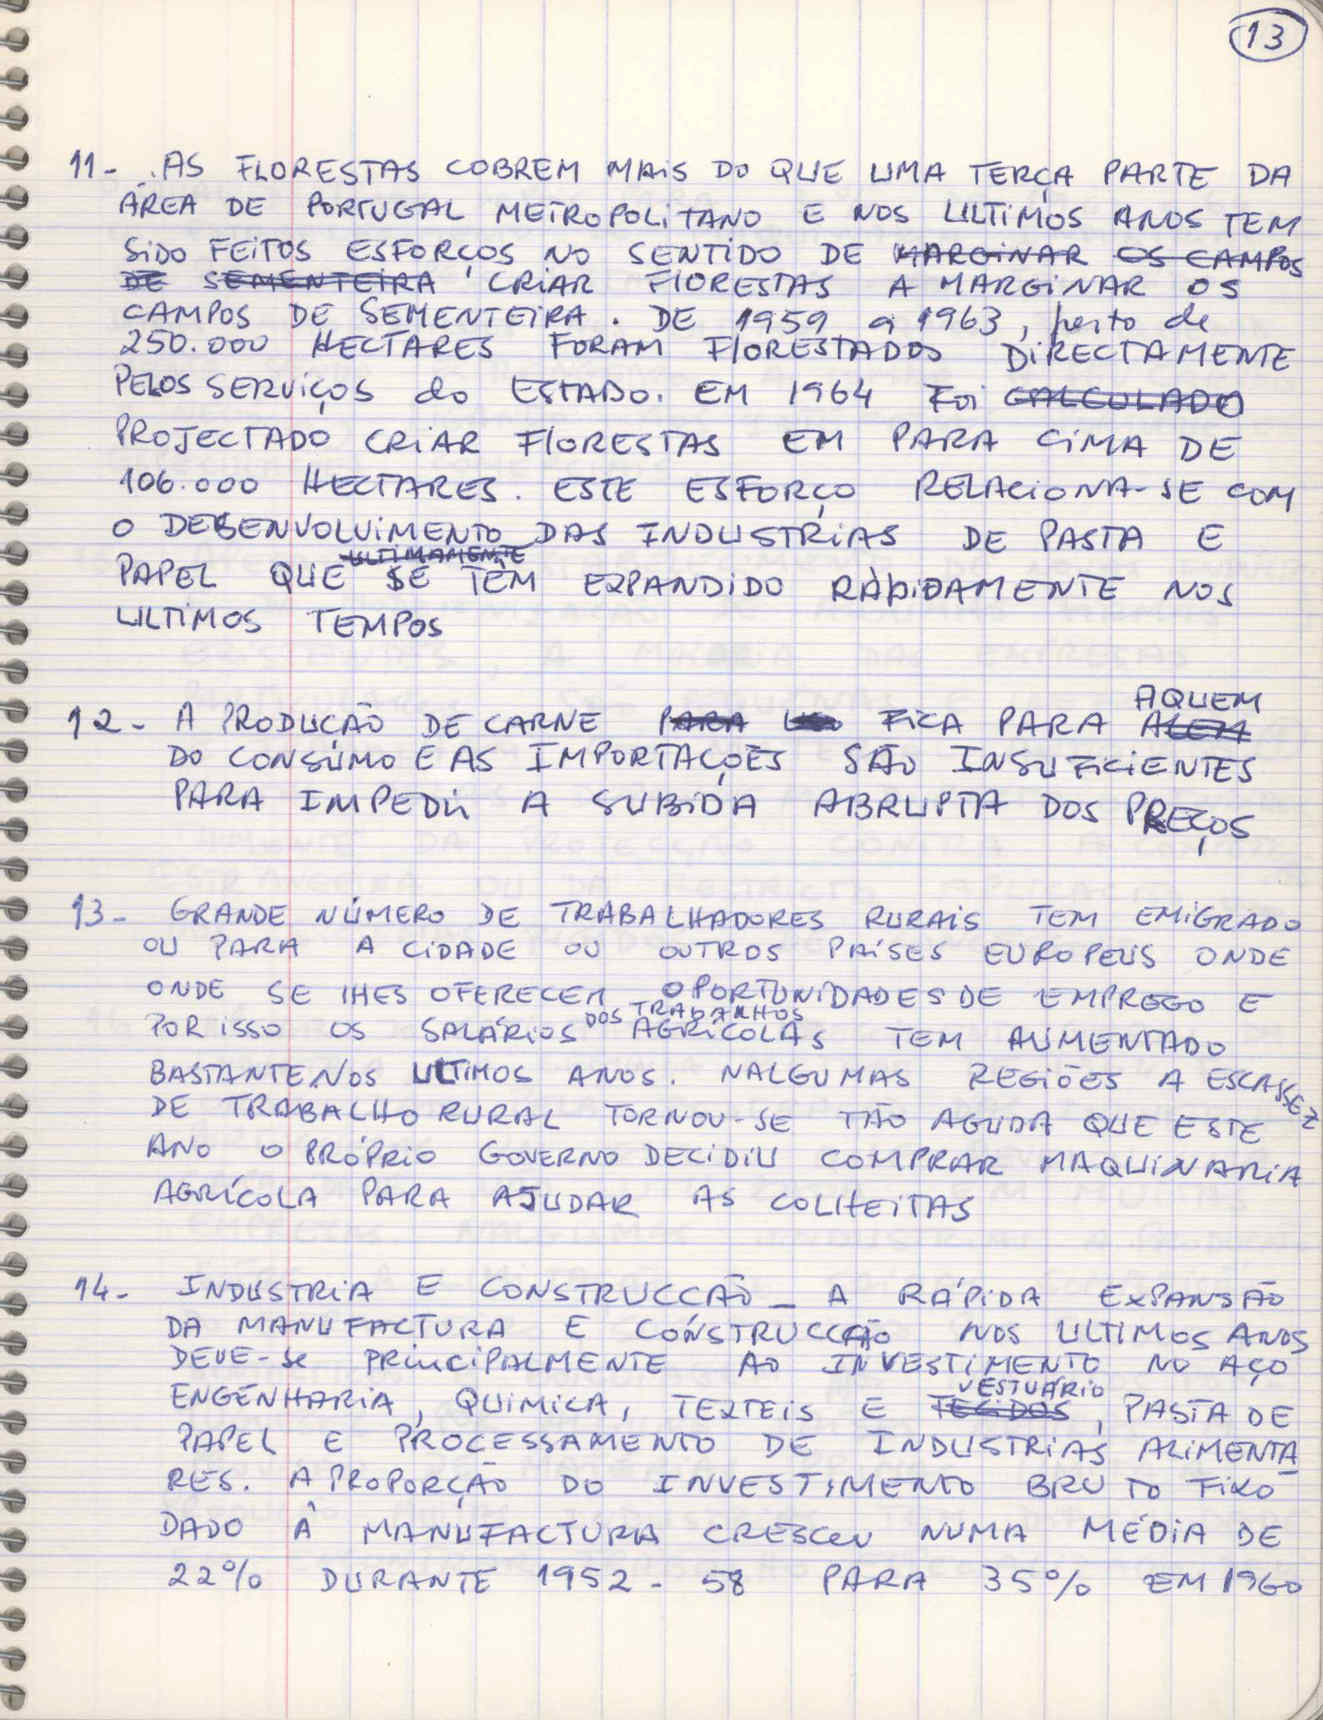 13
11- AS FLORESTAS COBREM MAIS DO QUE UMA TERÇA PARTE DA
ÁREA DE PORTUGAL METROPOLITANO E NOS ULTIMOS ANOS TEM
SIDO FEITOS ESFORÇOS NO SENTIDO DE MARGINAR OS CAMPOS
DE SEMENTEIRA CRIAR FLORESTAS A MARGINAR OS
CAMPOS DE SEMENTEIRA. DE 1959 a 1963, perto de
250.000 HECTARES FORAM FLORESTADOS DIRECTAMENTE
PELOS SERVIÇOS do ESTADO. EM 1964 FOI CALCULADO
PROJECTADO CRIAR FLORESTAS EM PARA CIMA DE
106.000 HECTARES. ESTE ESFORÇO RELACIONA-SE COM
O DESENVOLVIMENTO DAS INDUSTRIAS DE PASTA E
ULTIMAMENTE
PAPEL QUE SE TÊM EXPANDIDO RÀPIDAMENTE NOS
ULTIMOS TEMPOS
AQUEM
12- A PRODUCÃO DE CARNE PARA USO FICA PARA ALEM
DO CONSÚMO E AS IMPORTAÇÕES SÃO INSUFICIENTES
PARA IMPEDIR A SUBIDA ABRUPTA DOS PREÇOS
13- GRANDE NÚMERO DE TRABALHADORES RURAIS TEM EMIGRADO
OU PARA A CIDADE OU OUTROS PAÍSES EUROPEUS ONDE
ONDE SE LHES OFERECEM OPORTUNIDADES DE EMPREGO E
DOS TRABALHOS
POR ISSO OS SALÁRIOS AGRÍCOLAS TEM AUMENTADO
BASTANTE NOS ULTIMOS ANOS. NALGUMAS REGIÕES A ESCASSEZ
DE TRABALHO RURAL TORNOU-SE TÃO AGUDA QUE ESTE
ANO O PRÓPRIO GOVERNO DECIDIU COMPRAR MAQUINARIA
AGRÍCOLA PARA AJUDAR AS COLHEITAS
14- INDUSTRIA E CONSTRUCCÃO - A RÁPIDA EXPANSÃO
DA MANUFACTURA E CONSTRUCCÃO NOS ULTIMOS ANOS
DEVE-SE PRINCIPALMENTE AO INVESTIMENTO NO AÇO
VESTUÁRIO
ENGENHARIA, QUIMICA, TEXTEIS E TECIDOS, PASTA DE
PAPEL E PROCESSAMENTO DE INDUSTRIAS ALIMENTA
RES. A PROPORÇÃO DO INVESTIMENTO BRUTO FIXO
DADO Â MANUFACTURA CRESCEU NUMA MÉDIA DE
22% DURANTE 1952 - 58 PARA 35% EM 1960